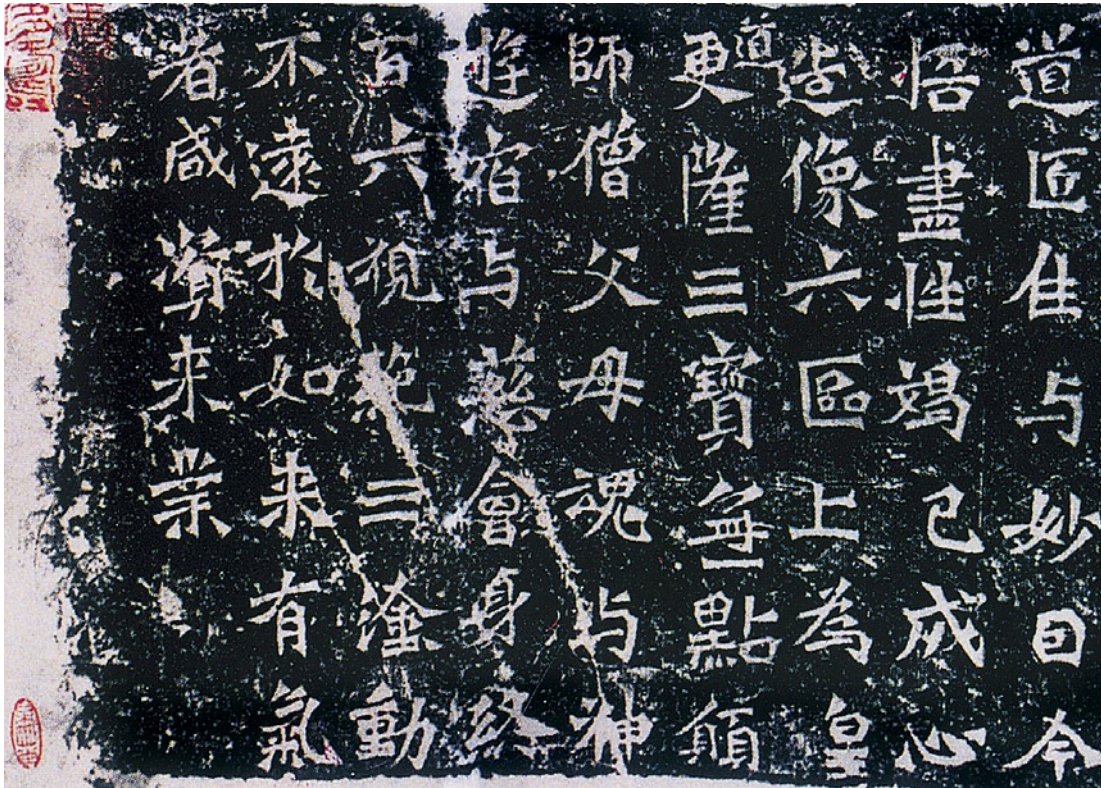 道匠住与妙因今
悟盡性竭己成心
造像六區上為皇
道更隆三寶無點願
師僧父母魂与神
遊宿与慈會身終
百六視絕三塗動
不遠於如来有氣
者咸齊来業